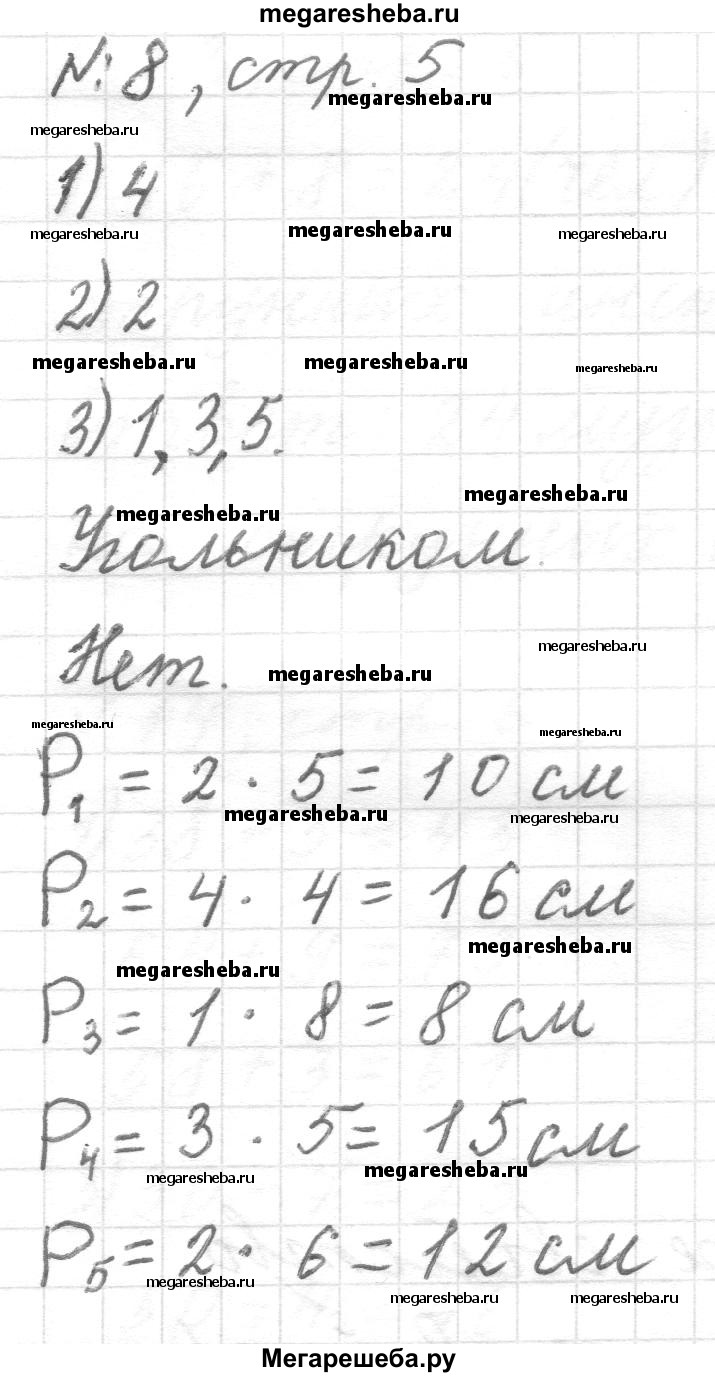 megaresheba.ru
№ 8, стр. 5
megaresheba.ru
megaresheba.ru
1) 4
megaresheba.ru megaresheba.ru megaresheba.ru
2) 2
megaresheba.ru megaresheba.ru megaresheba.ru
3) 1, 3, 5.
megaresheba.ru
megaresheba.ru
Угольником.
Нет.
megaresheba.ru
megaresheba.ru
megaresheba.ru
megaresheba.ru
P₁ = 2 · 5 = 10 см
megaresheba.ru megaresheba.ru
P₂ = 4 · 4 = 16 см
megaresheba.ru
megaresheba.ru
P₃ = 1 · 8 = 8 см
P₄ = 3 · 5 = 15 см
megaresheba.ru megaresheba.ru
P₅ = 2 · 6 = 12 см
megaresheba.ru
megaresheba.ru megaresheba.ru
Мегарешеба.ру